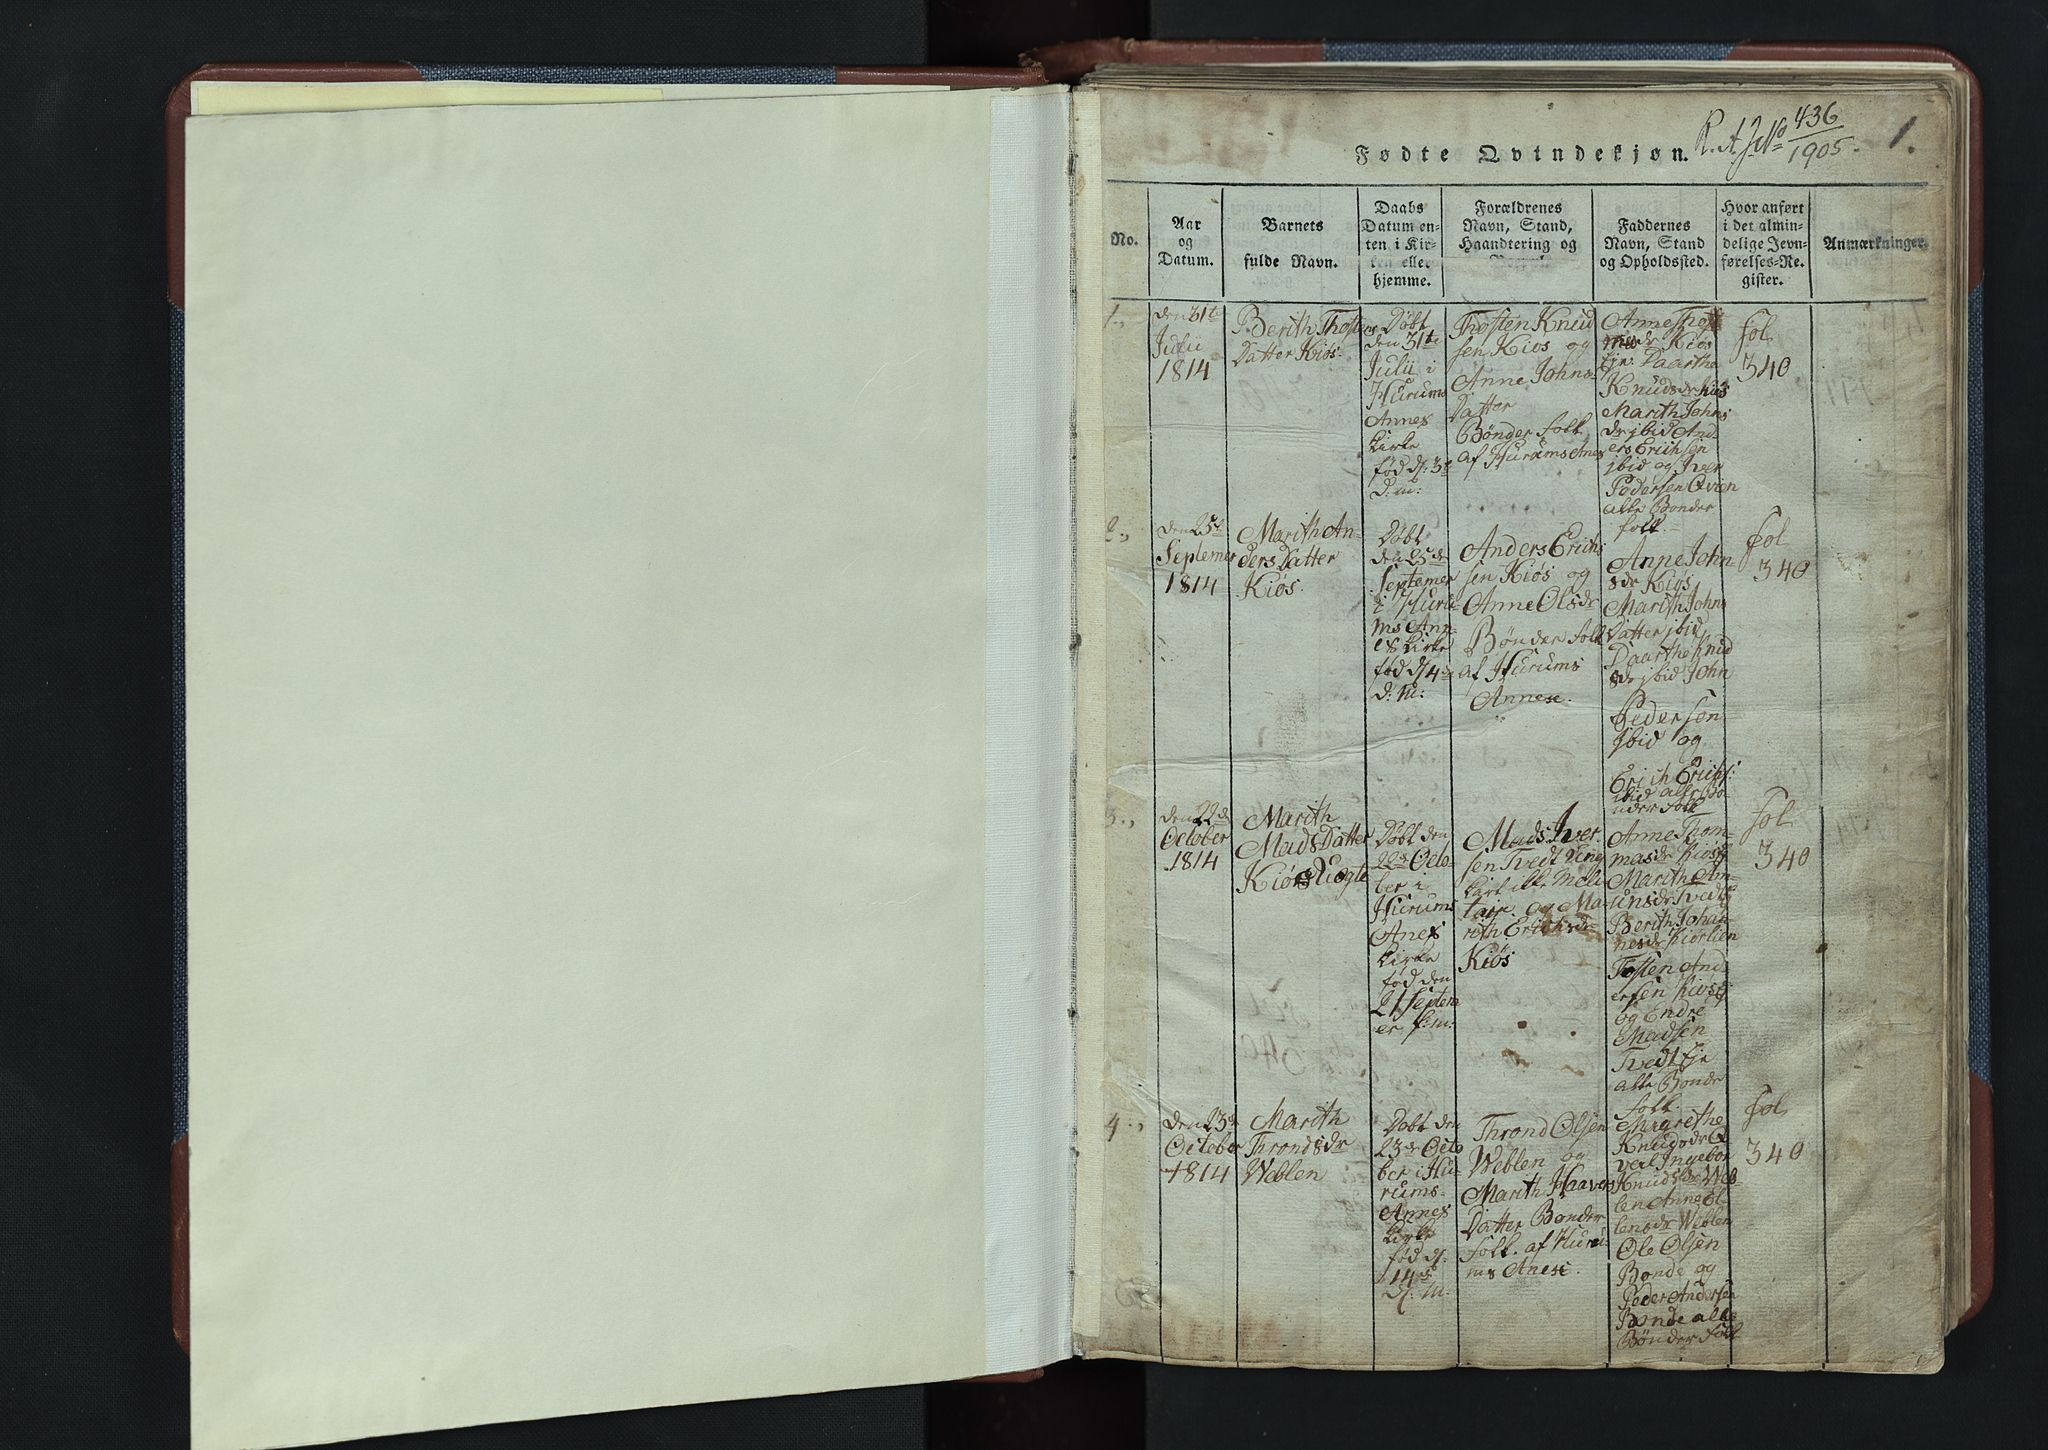 R. A. J. No 436/1905.
1.
Fødte Qvindekjøn.
No.
Aar
og
Datum.
Barnets
fulde Navn.
Daabs
Datum en-
ten i Kir-
ken eller
hjemme.
Forældrenes
Navn, Stand,
Haandtering og
Faddernes
Navn, Stand
og Opholdssted.
Hvor anført
i det almin-
delige Jevn-
førelses-Re-
gister.
Anmærkninger.
1.,
den 31te
Julii
1814
Berith Thostens
Datter Kiøs.
Døbt
den 31te
Julii i
Hurums
Annex
Kirke
fød d: 3de
d: m:
Thosten Knud
sen Kiøs og
Anne Johns
Datter
Bønder folk
af Hurums Anex
Anne Tho
Kiøs
Eje: Daarthe
Knudsdr Kiøs
Marith Johns
dr jbid And
ers Erichsen
jbid og Iver
Pedersen Qvien
alle Bønder
folk
fol
340
2.,
den 25de
Septemer
1814
Marith An-
ders Datter
Kiøs.
Døbt
den 25de
Septemer
i Huru
ms Ann-
ex Kirke
fød d: 4de
d: m:
Anders Erich
sen Kiøs og
Anne Olsdr
Bønder folk
af Hurums
Annex.
Anne John
sdr Kiøs
Marith Johns
Datter jbid
Daarthe Knud
sdr jbid John
Pedersen
jbid og
Erich Erichs:
ibid alle Bø
nder folk
fol
340
3.,
den 22de
October
1814
Marith
Mads Datter
Kiøs
Døbt den
22de Octo
ber i
Hurums
Anex
Kirke
fød den
21 Septem
er f: m:
Mads Iver
sen Tvedt Ung
karl ikke Mili
tair og Ma
rith Erichsdr
Kiøs
Anne Thom-
masdr Kiøs
Marith Am-
unsdr Tvedt
Berith Johan-
nesdr Kiørlien
Tosten And
ersen Kiøs
og Endre
Madsen
Tvedt Eje
alle Bønder
folk
fol
340
4.,
den 23de
October
1814
Marith
Thronds dr
Weblen
Døbt den
23de Octo
ber i Hu-
rums-
Annex
Kirke
fød d:
14de
d: m:
Thrond Olsen
Weblen og
Marith Haavers
Datter Bønder
folk. af Huru
ms Anex.
Margrethe
Knudsdr Q
vel Ingebor
Knudsdr Web
len Anne Ol
lensdr Weblen
Ole Olsen
Bonde og
Peder Andersen
Bonde alle
Bønder folk
fol
340